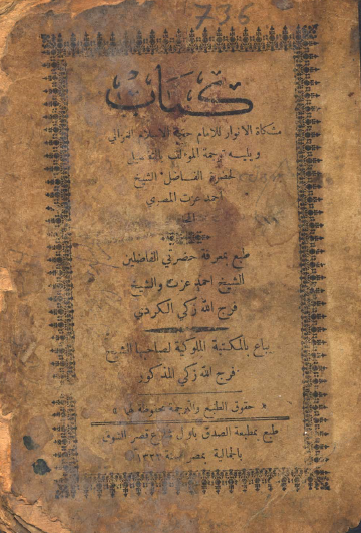 736
كتاب
مشكاة الانوار للامام حجة الاسلام الغزالي
ويليه ترجمة المؤلف بالتفصيل
لحضرة الفاضل الشيخ
احمد عزت المصري
طبع بمعرفة حضرتي الفاضلين
الشيخ احمد عزت والشيخ
فرج الله زكي الكردي
يباع بالمكتبة الملوكية لصاحبها الشيخ
فرج الله زكي المذكور
« حقوق الطبع والترجمة محفوظة لهما »
طبع بمطبعة الصدق باول شارع قصر الشوق
بالجمالية بمصر سنة ١٣٢٢